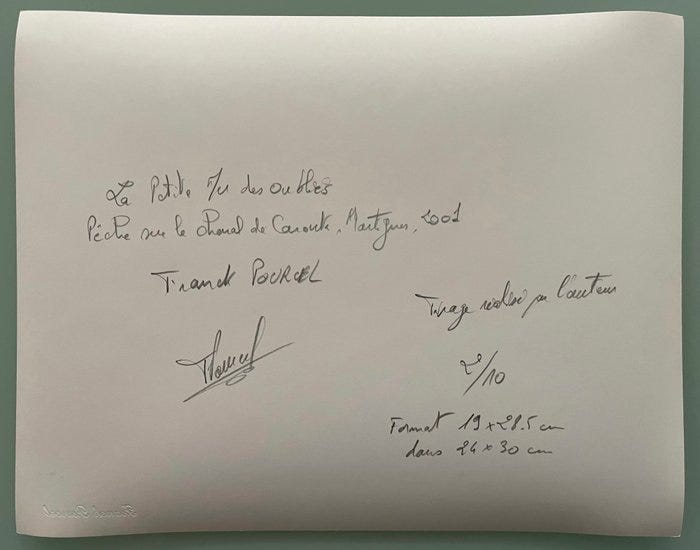 La Petite Mer des oubliés
Pêche sur le chenal de Caronte, Martigues, 2001
Franck POURCEL
Tirage réalisé par l'auteur
2/10
Format 19 x 28.5 cm
dans 24 x 30 cm
Franck Pourcel